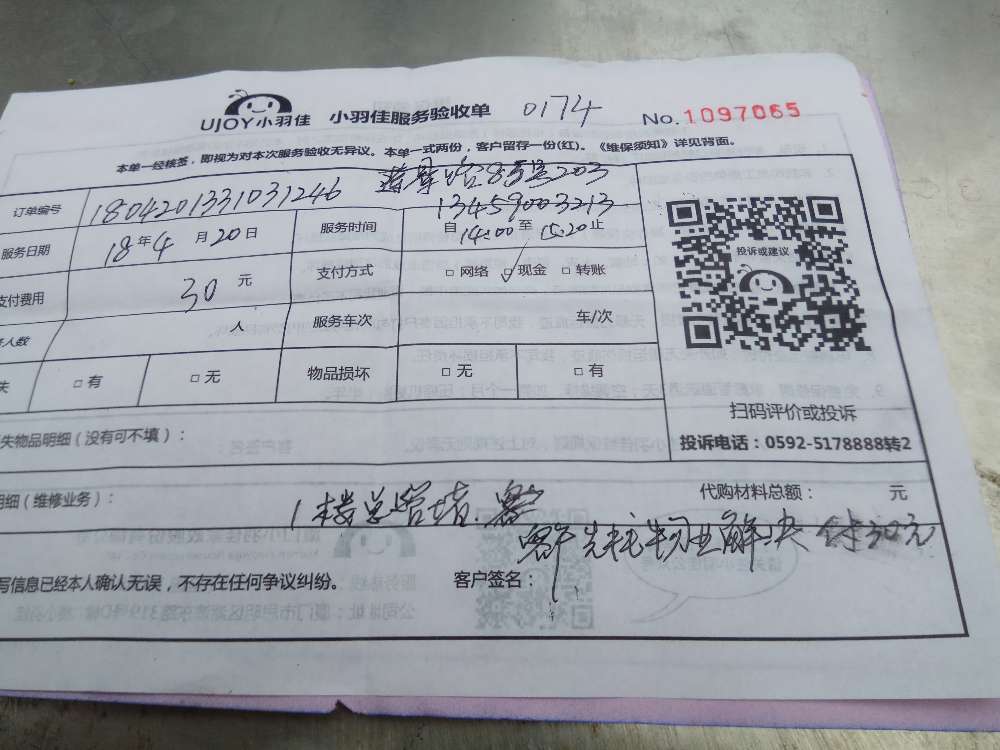 UJOY小羽佳 小羽佳服务验收单 0174 No.1097065
本单一经核签，即视为对本次服务验收无异议。本单一式两份，客户留存一份(红)。《维保须知》详见背面。
8号203
订单编号 1804201331031246
13459003213
服务日期 18年4月20日 服务时间 自14:00至15:20止
支付费用 30元 支付方式 □网络 ✓现金 □转账
人数 人 服务车次 车/次
失 □有 □无 物品损坏 □无 □有
投诉或建议
扫码评价或投诉
投诉电话：0592-5178888转2
失物品明细（没有可不填）：
明细（维修业务）： 代购材料总额： 元
1楼总管堵.
物业解决 付30元
写信息已经本人确认无误，不存在任何争议纠纷。 客户签名：